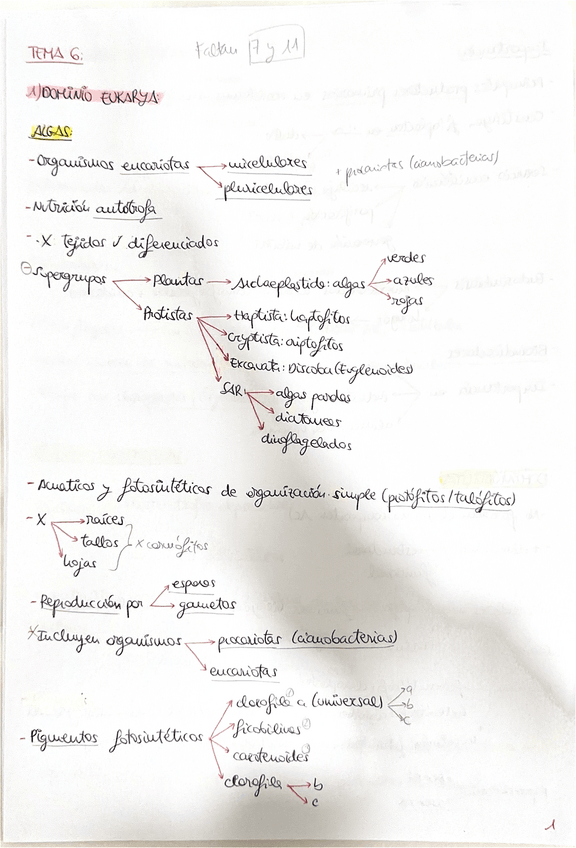 TEMA 6:
Faltan 7 y 11
1) DOMINIO EUKARYA:
ALGAS:
- Organismos eucariotas → unicelulares
→ pluricelulares
+ procariotas (cianobacterias)
- Nutrición autótrofa
- X tejidos ✓ diferenciados
Supergrupos → Plantas → Archaeplastida: algas → verdes
→ azules
→ rojas
→ Protistas → Haptista: haptofitos
→ Cryptista: criptofitos
→ Excavata: Discoba (Euglenoides)
→ SAR → algas pardas
→ diatomeas
→ dinoflagelados
- Acuaticos y fotosintéticos de organización simple (protófitos/talófitos)
- X → raíces
→ tallos
→ hojas
} X cormófitos
- Reproducción por → esporas
→ gametos
X Incluyen organismos → procariotas (cianobacterias)
→ eucariotas
- Pigmentos fotosintéticos → clorofila a (universal) → a
→ b
→ c
→ ficobilinas
→ carotenoides
→ clorofila → b
→ c
1